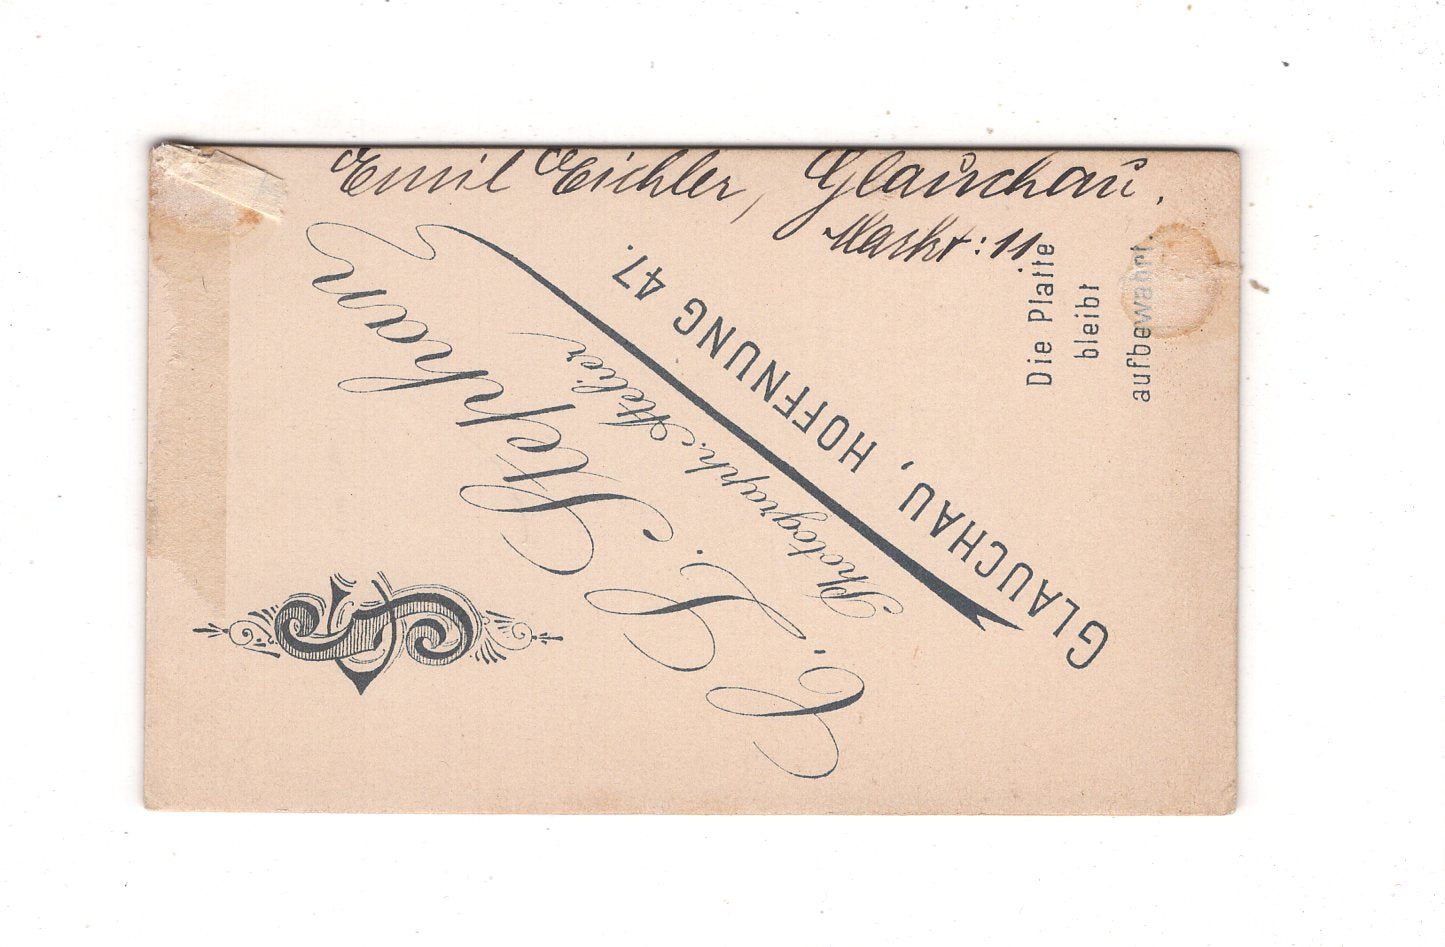 Emil Eichler, Glauchau.
Markt: 11
C. L. Stephan
Photograph. Atelier
GLAUCHAU, HOFFNUNG 47.
Die Platte
bleibt
aufbewahrt.